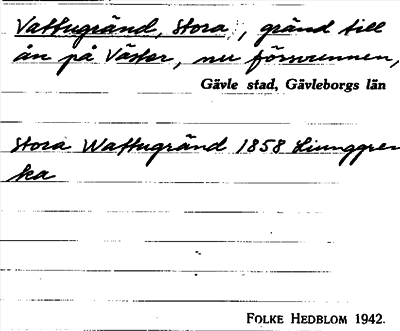 Vattugränd, Stora, gränd till
ån på Väster, nu försvunnen,
Gävle stad, Gävleborgs län
Stora Wattugränd 1858 Ljunggren
ka
FOLKE HEDBLOM 1942.